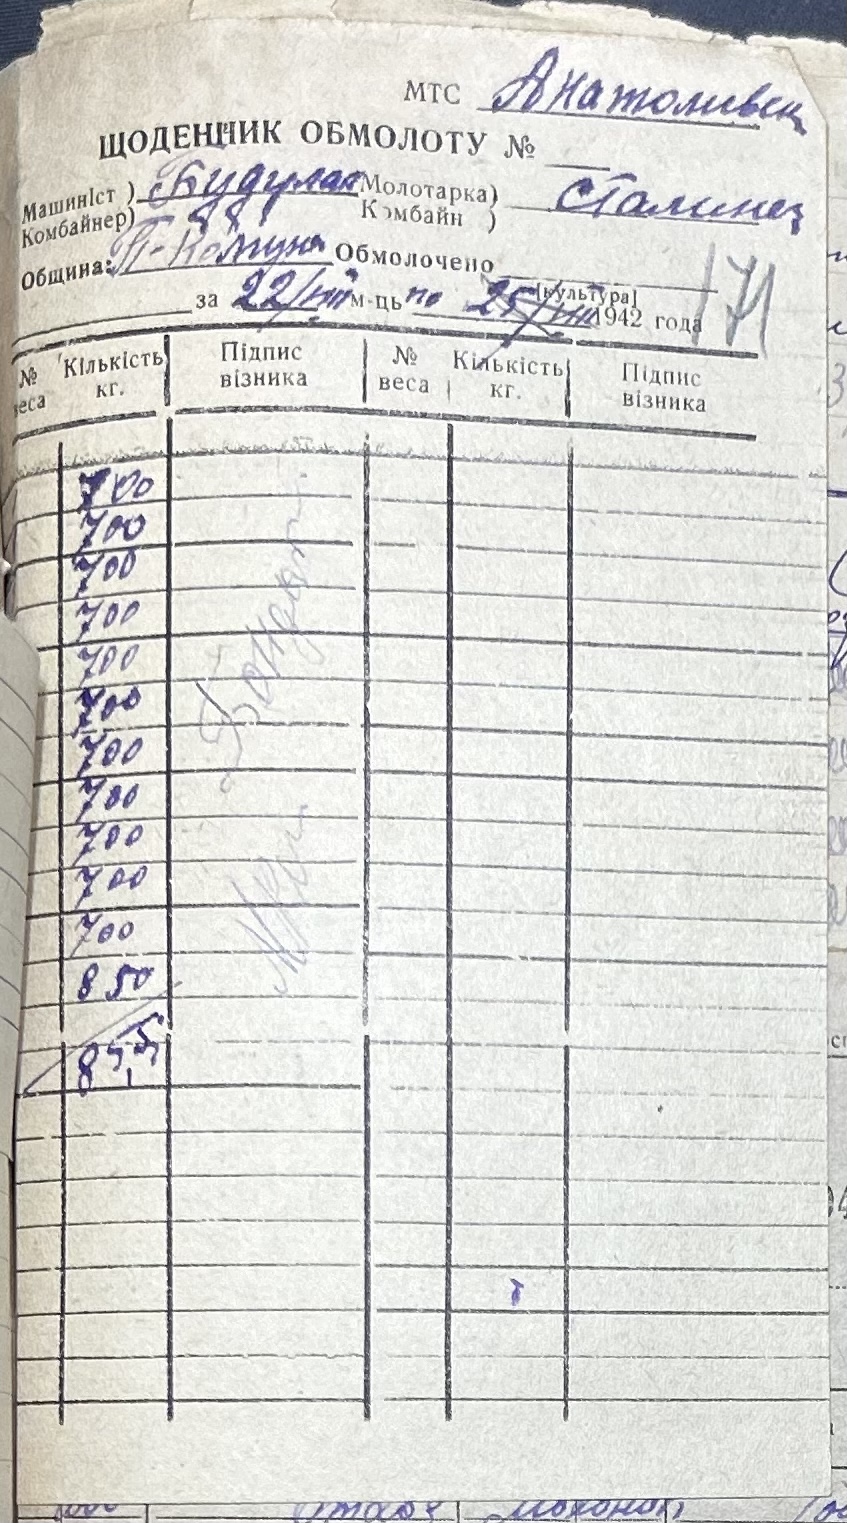 МТС Анатоливськ
ЩОДЕННИК ОБМОЛОТУ №
Машиніст ) Будулак Молотарка)
Комбайнер) Комбайн ) Сталинец
Община: П-Комуна Обмолочено
[культура] 171
за 22/VIII м-ць по 25/VIII 1942 года
№ веса Кількість кг. Підпис візника № веса Кількість кг. Підпис візника
700
700
700
700
700
700
700
700
700
700
700
850